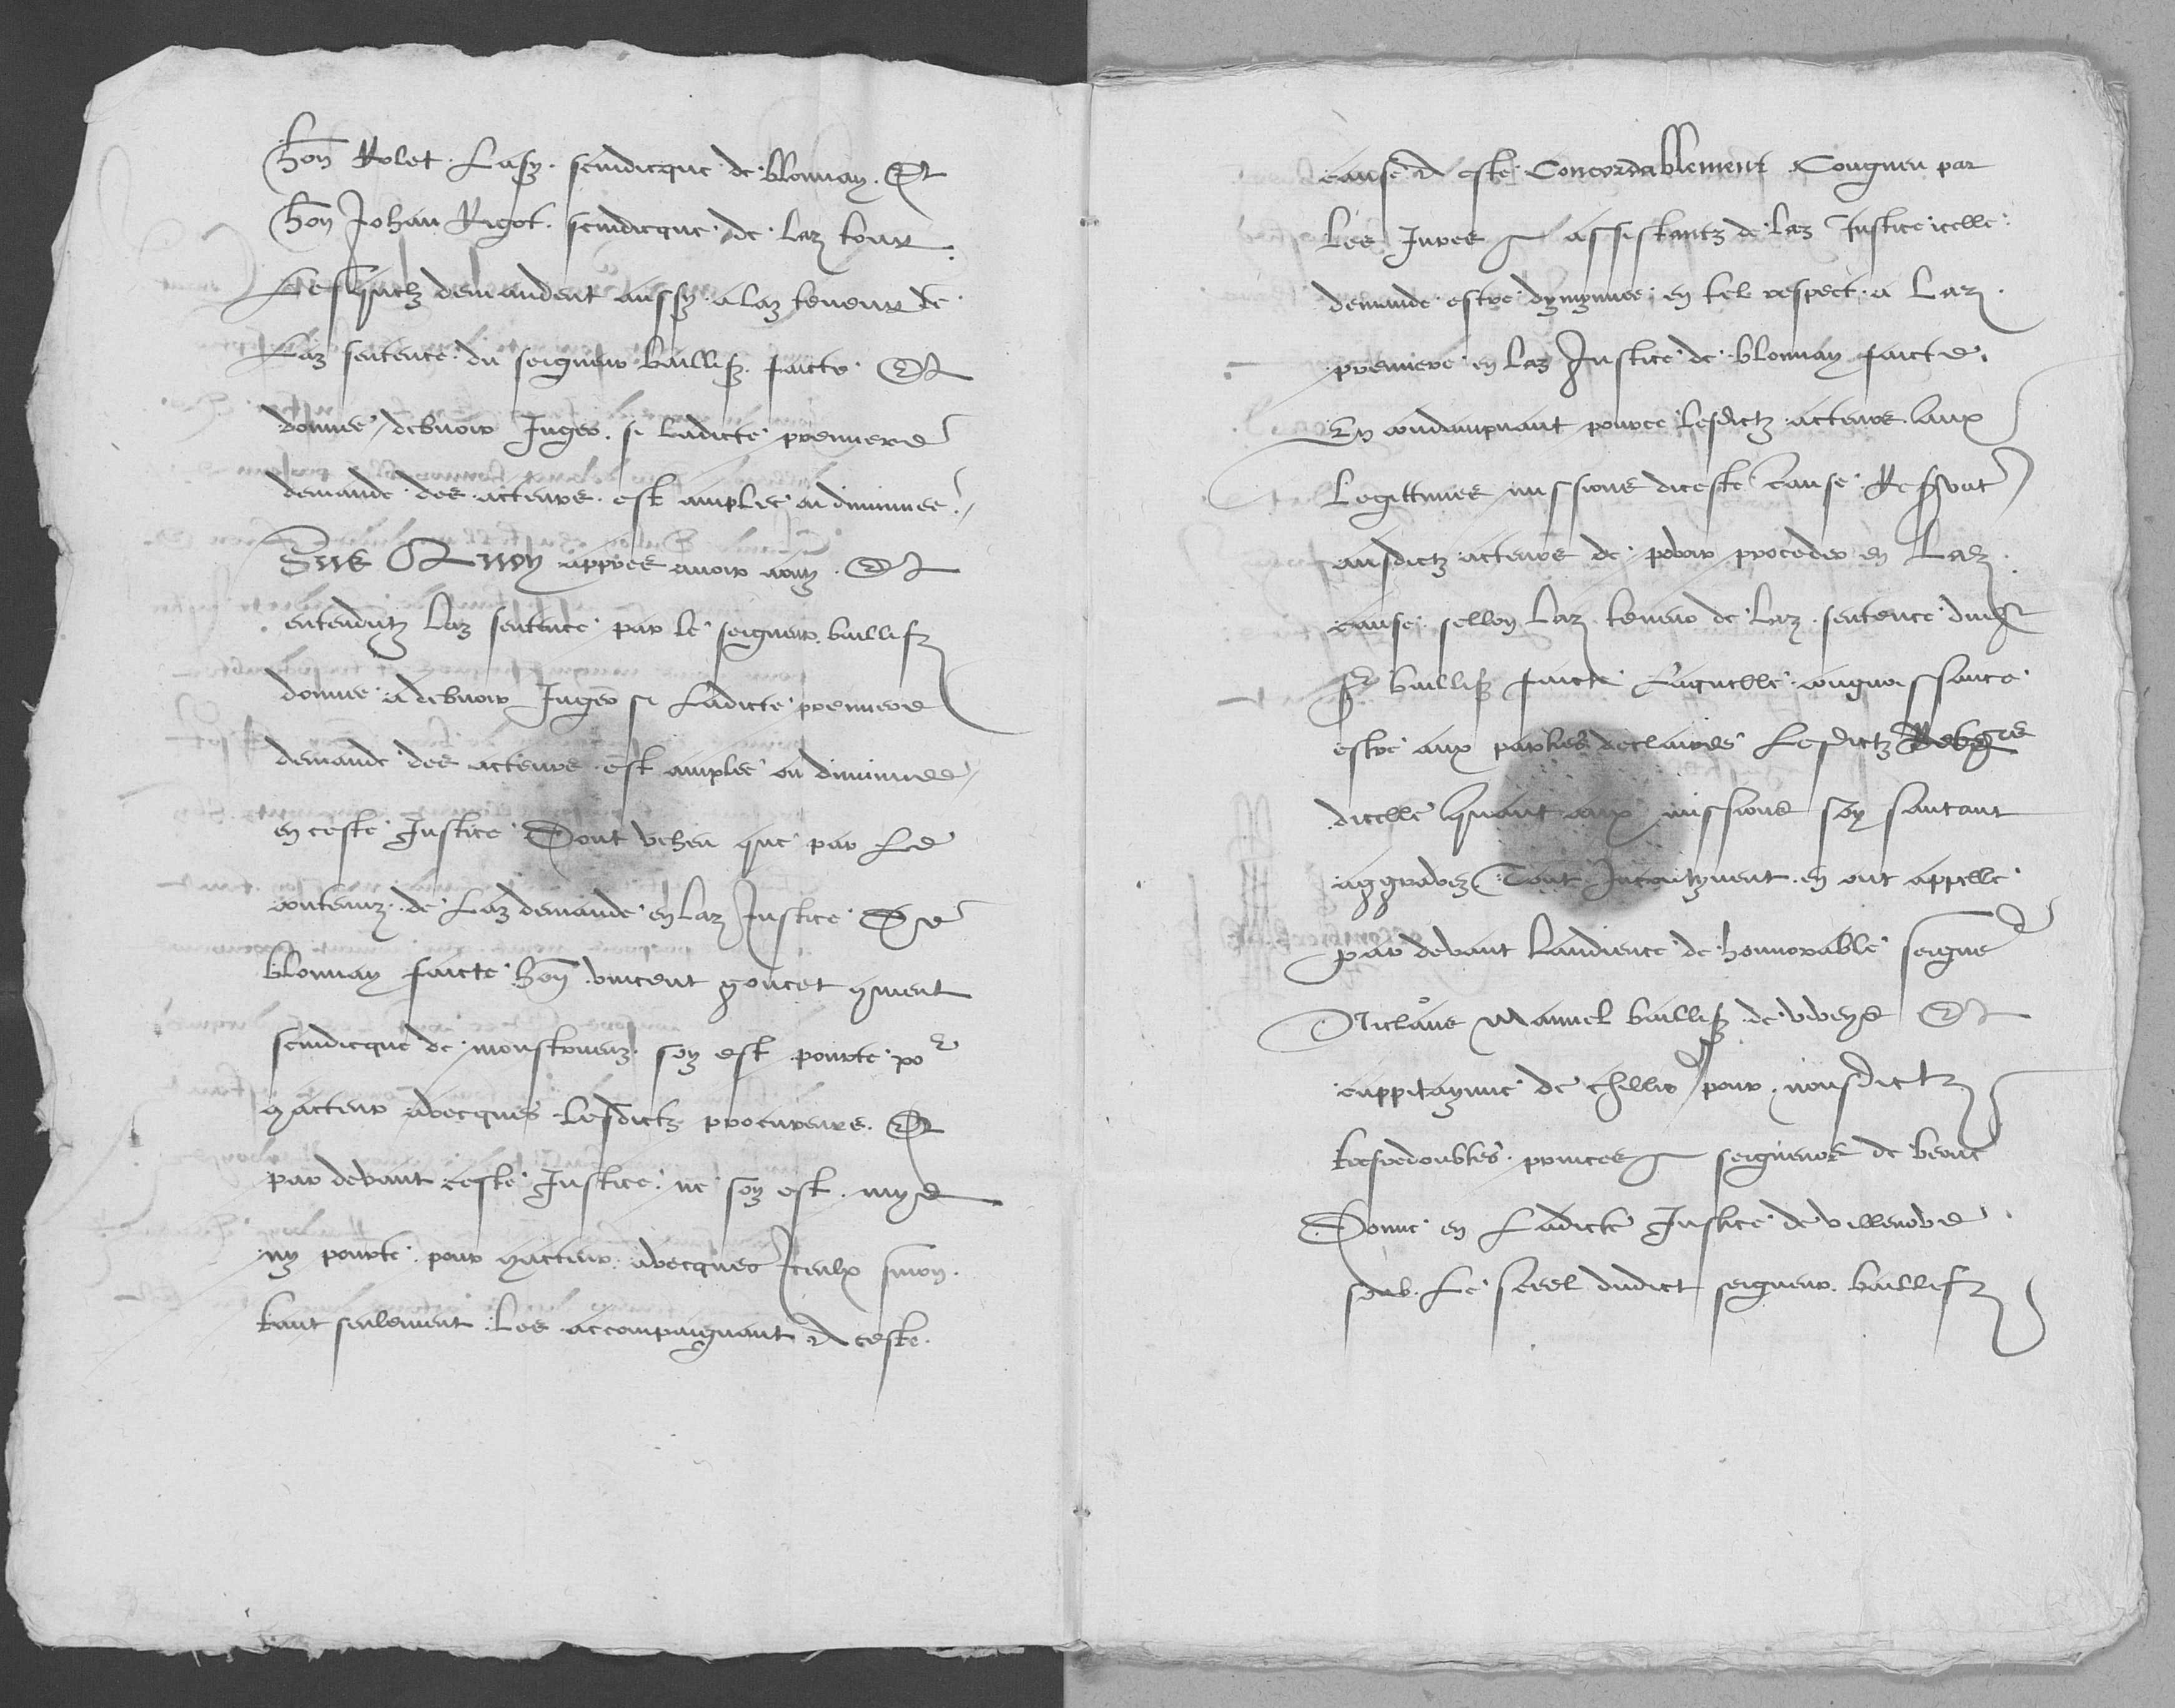 hon Rolet Lasy scindicque de blonnay Et
hon Johan Rigot scindicque de laz tour
Lesquelz demandent aussy a laz teneur de
Laz sentence du seigneur baillifz faicte Et
donnee debvoir Juger se ladicte premiere
demande des acteurs est amplie ou diminuee
Sus Quoy appres avoir ouy Et
entenduz laz sentence par le seigneur baillifz
donnee a debvoir Juger se Ladicte premiere
demande des acteurs est amplie ou diminuee
en ceste Justice Dont veheu que par Le
contenuz de Laz demande en laz Justice De
blonnay faicte hon vincent goncet qment
scindicque de monstruz soy est pourte po
qacteur avecques lesdictz procureurs Et
par devant ceste Justice ne soy est mys
ny pourte pour qacteur avecques Iceulx sinon
tant seulement Les accompaignant A ceste
cause A este Concordablement Cougneu par
Les Jures et assistantz de laz Justice icelle
demande estre dyminuee en tel respect a Laz
premiere en laz Justice de blonnay faicte
En condampnant pource lesdictz acteurs aux
Legittimes missions diceste cause Reservat
ausdictz acteurs de povoir proceder en Laz
cause sellon Laz teneur de laz sentence dudict
Sr baillifz faicte Laquelle cougnoissance
estre aux parties declairee Lesdictz
dicelle quant aux missions soy santant
aggravez Tout Incontynent en ont appelle
par devant laudience de honnorable seigneur
Niclaus Manuel baillifz de viveys Et
cappitaynne de chillion pour nousdictz
tresredoubtes princes et seigneurs de berne
Donne en Ladicte Justice de villenove
soub Le seel dudict seigneur baillifz